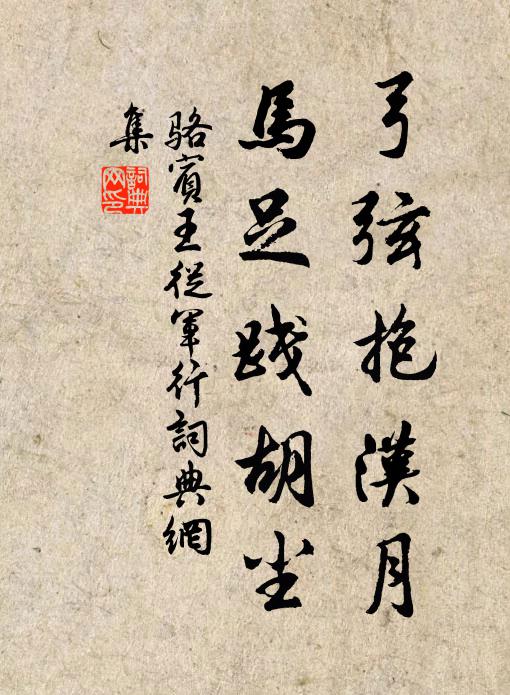 弓弦抱漢月
馬足踐胡尘
駱賓王從軍行詞典網
集
詞典
网印